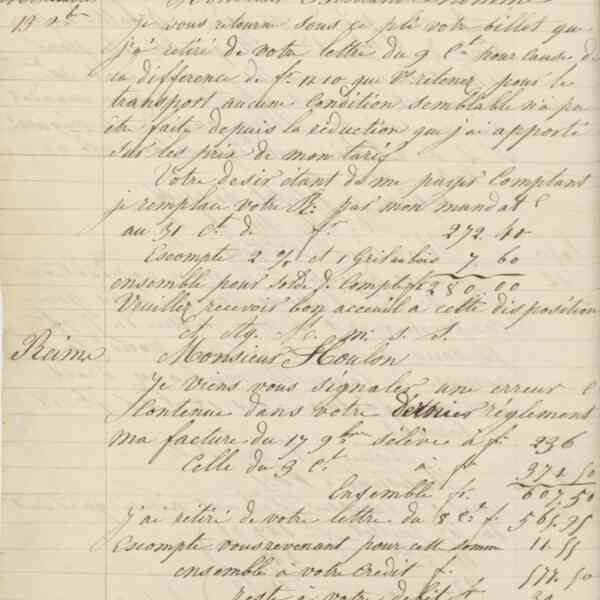 13 Xbre
Je vous retourne sous ce pli votre billet que
j'ai retiré de votre lettre du 9 Ct pour cause de
la difference de f. 11.10 que Vs retenez pour le
transport aucune Condition semblable n'a pu
être faite depuis la réduction que j'ai apporté
sur les prix de mon tarif
Votre desir étant de me payer Comptant
je remplace votre Bt par mon mandat
au 31 Ct de fr. 272.40
Escompte 2 % et 1 7.60
ensemble pour solde de Compte f. 280.00
Veuillez recevoir bon accueil à cette disposition
et Ag. Mr. m. s. s.
Reims Monsieur Houlon
Je viens vous signaler une erreur
Contenue dans votre dernier réglement
ma facture du 17 9bre s'élève à fr. 236
Celle du 3 Ct à fr 371.50
Ensemble fr. 607.50
J'ai retiré de votre lettre du 8 Ct f. 561.95
Escompte vous revenant pour cette somme 11.55
ensemble à votre Crédit f. 577.50
reste à votre débit f 30